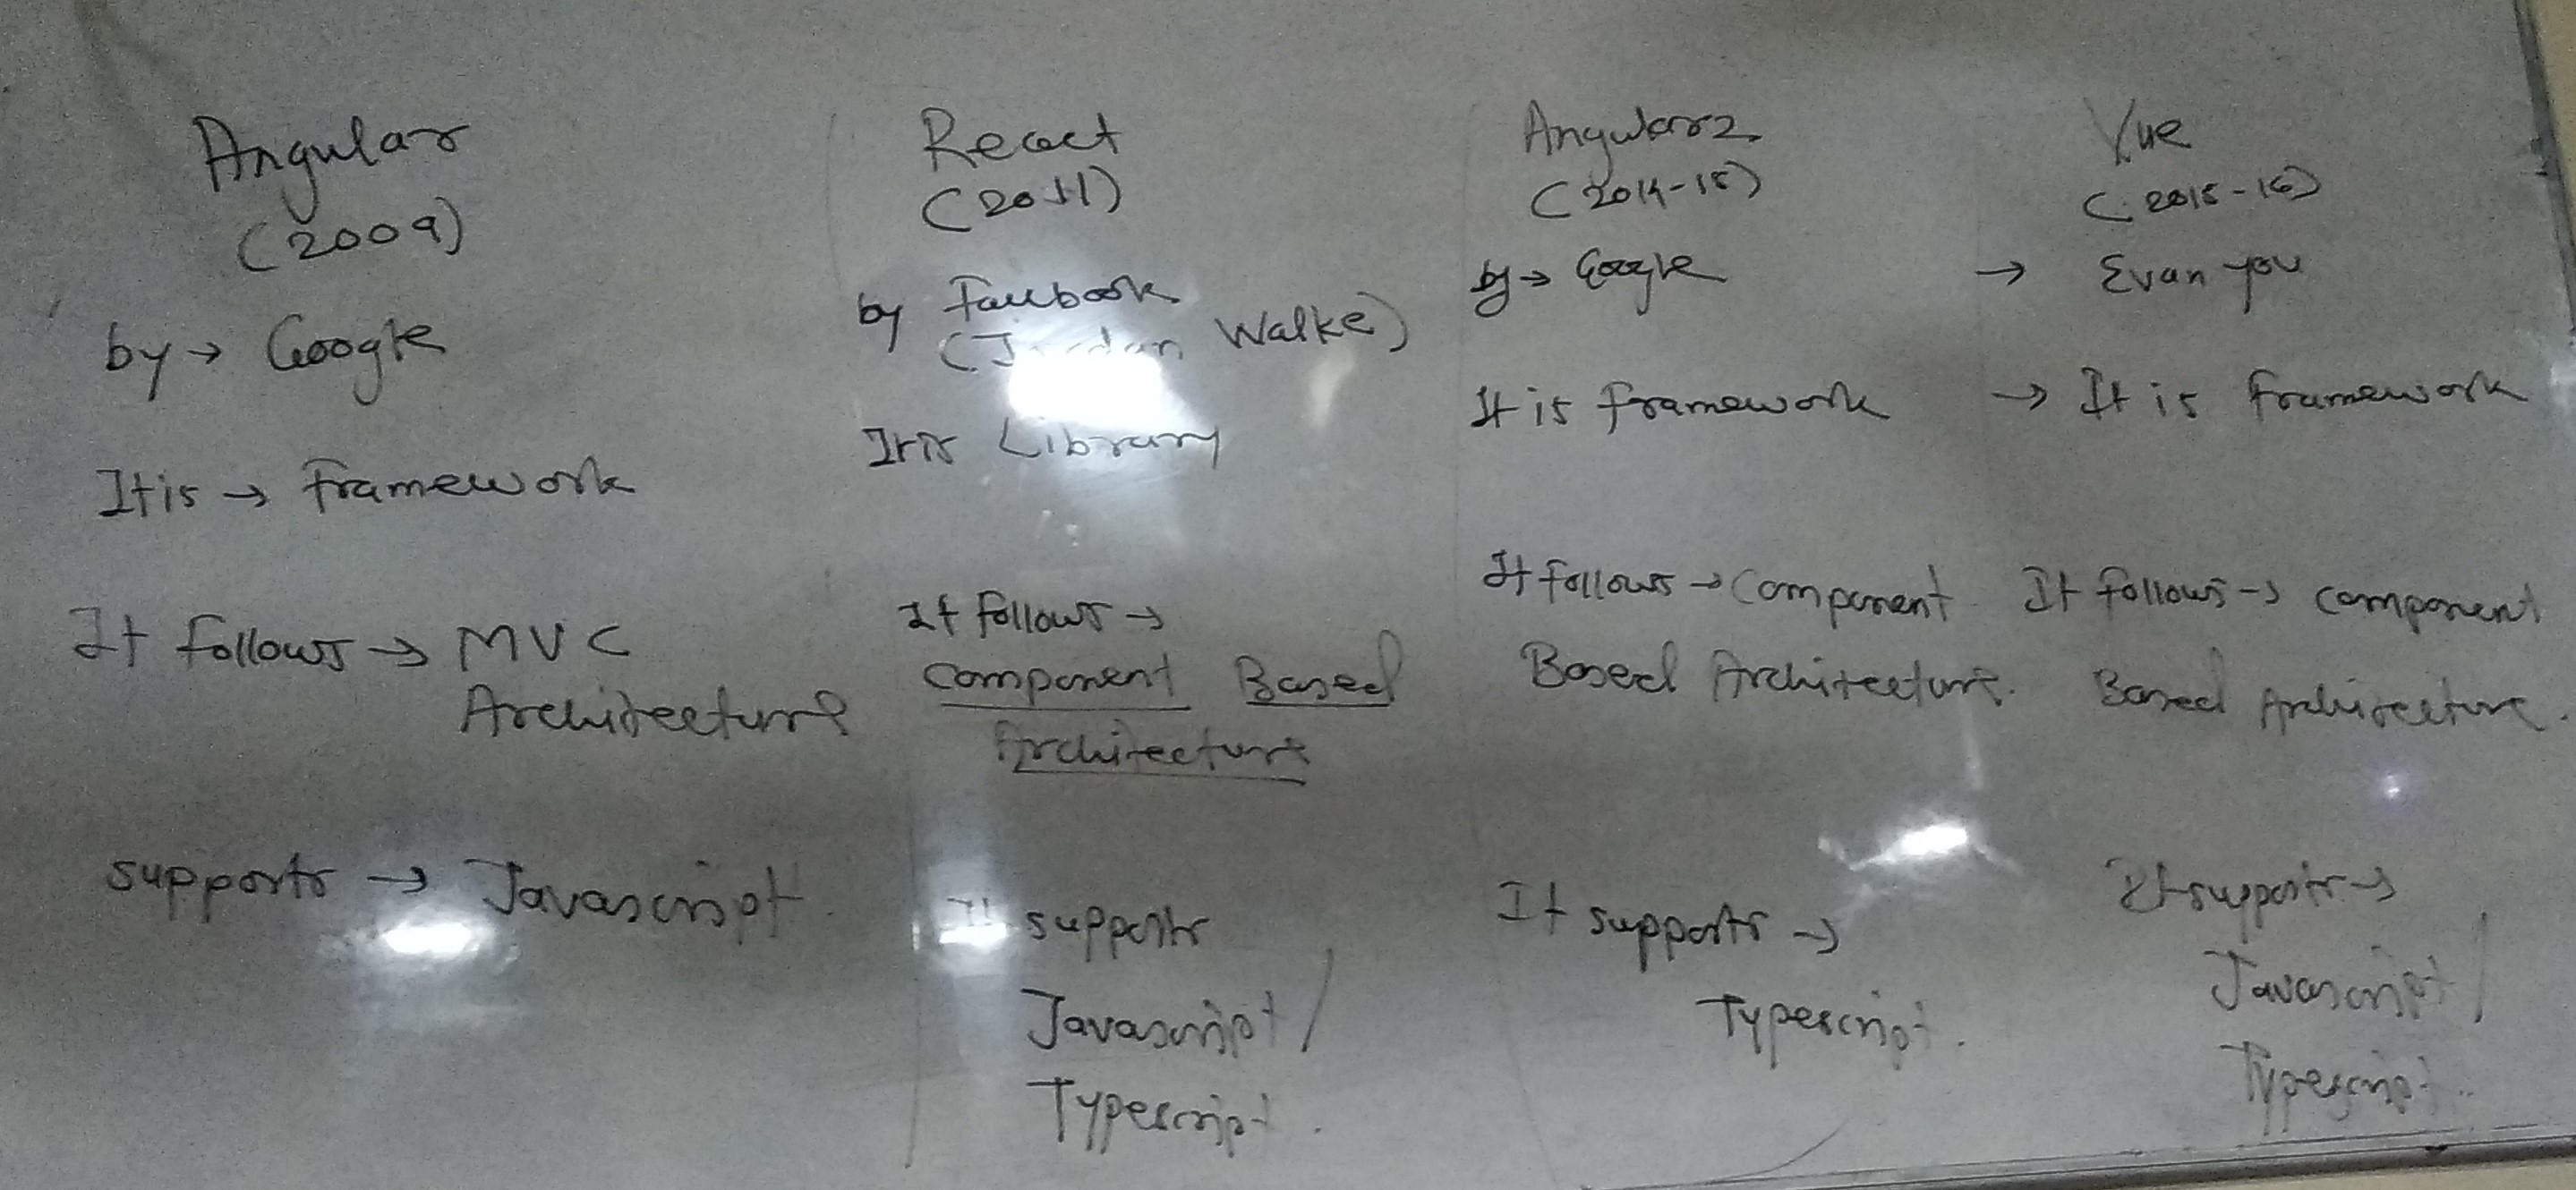 Angular
(2009)
by → Google
It is → Framework
It follows → MVC
Architecture
supports → Javascript.
React
(2011)
by Facebook
(Jordan Walke)
It is Library
It follows →
Component Based
Architecture
It supports
Javascript/
Typescript.
Angular2
(2014-15)
by → Google
It is framework
It follows → Component
Based Architecture.
It supports →
Typescript.
Vue
(2015-16)
→ Evan you
→ It is framework
It follows → component
Based Architecture.
It supports →
Javascript/
Typescript.